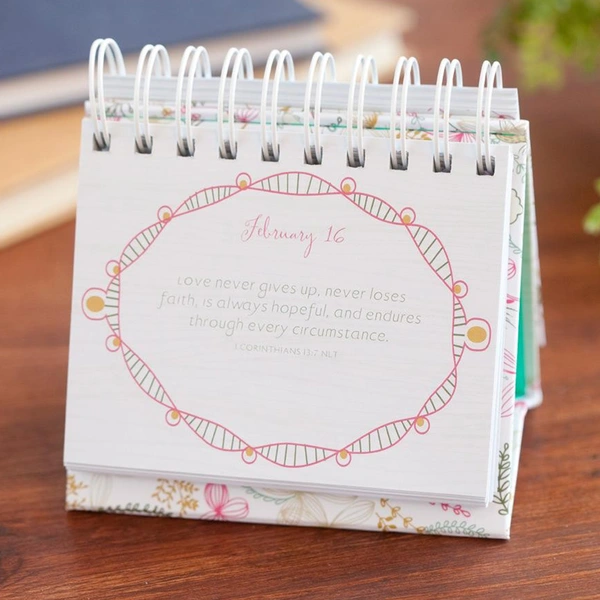 February 16
Love never gives up, never loses
faith, is always hopeful, and endures
through every circumstance.
1 CORINTHIANS 13:7 NLT